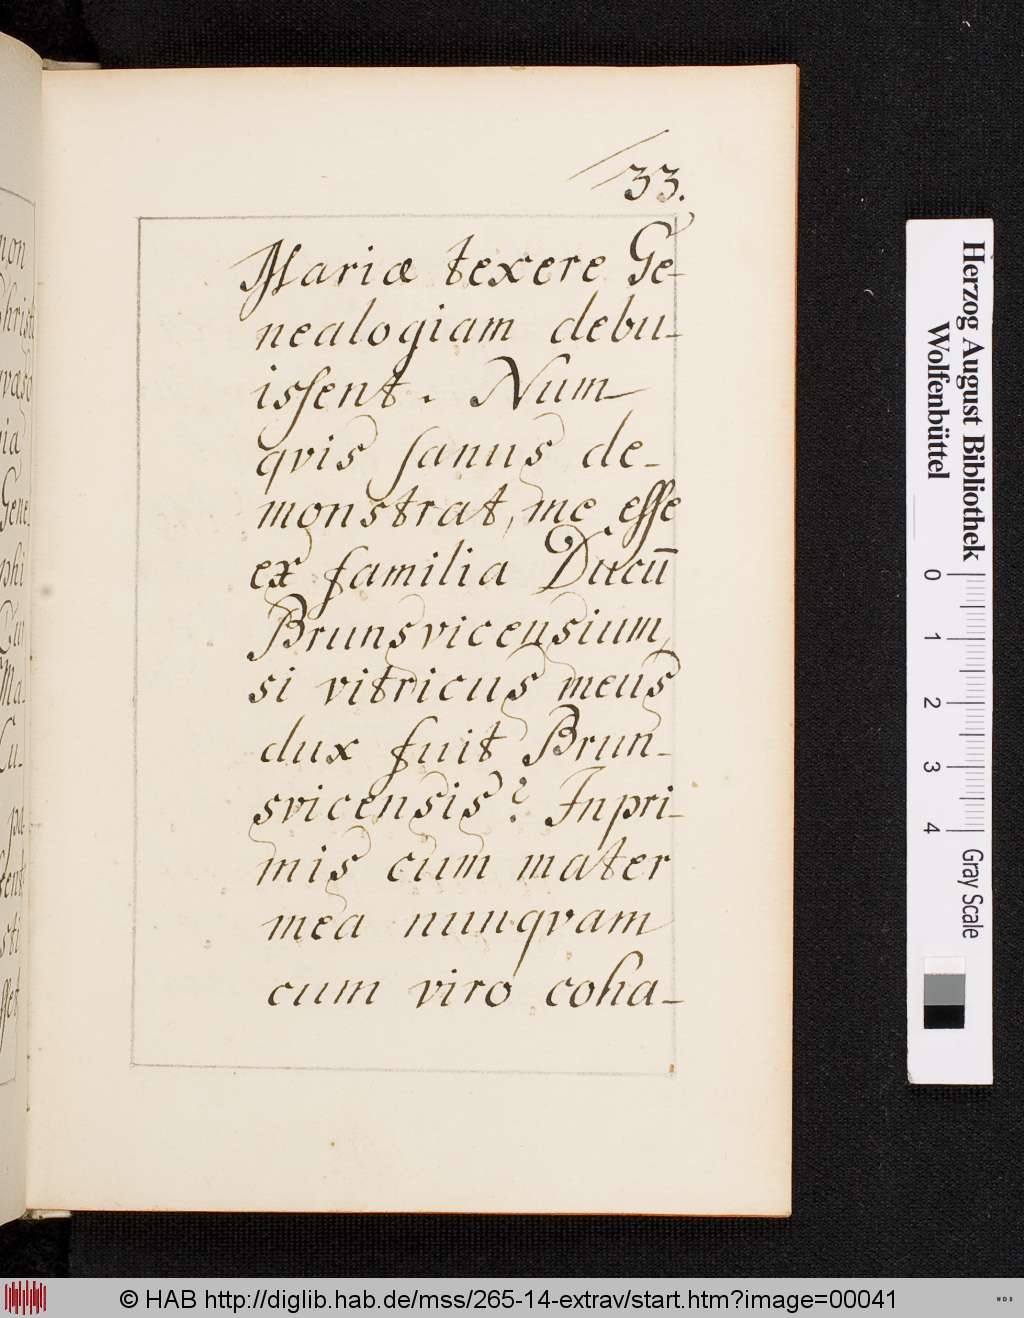 33.
Mariæ texere Ge-
nealogiam debu-
issent. Num
qvis sanus de-
monstrat, me esse
ex familia Ducū
Brunsvicensium,
si vitricus meus
dux fuit Brun-
svicensis? Inpri-
mis cum mater
mea nunqvam
cum viro coha-
Herzog August Bibliothek
Wolfenbüttel
0 1 2 3 4 Gray Scale
© HAB http://diglib.hab.de/mss/265-14-extrav/start.htm?image=00041